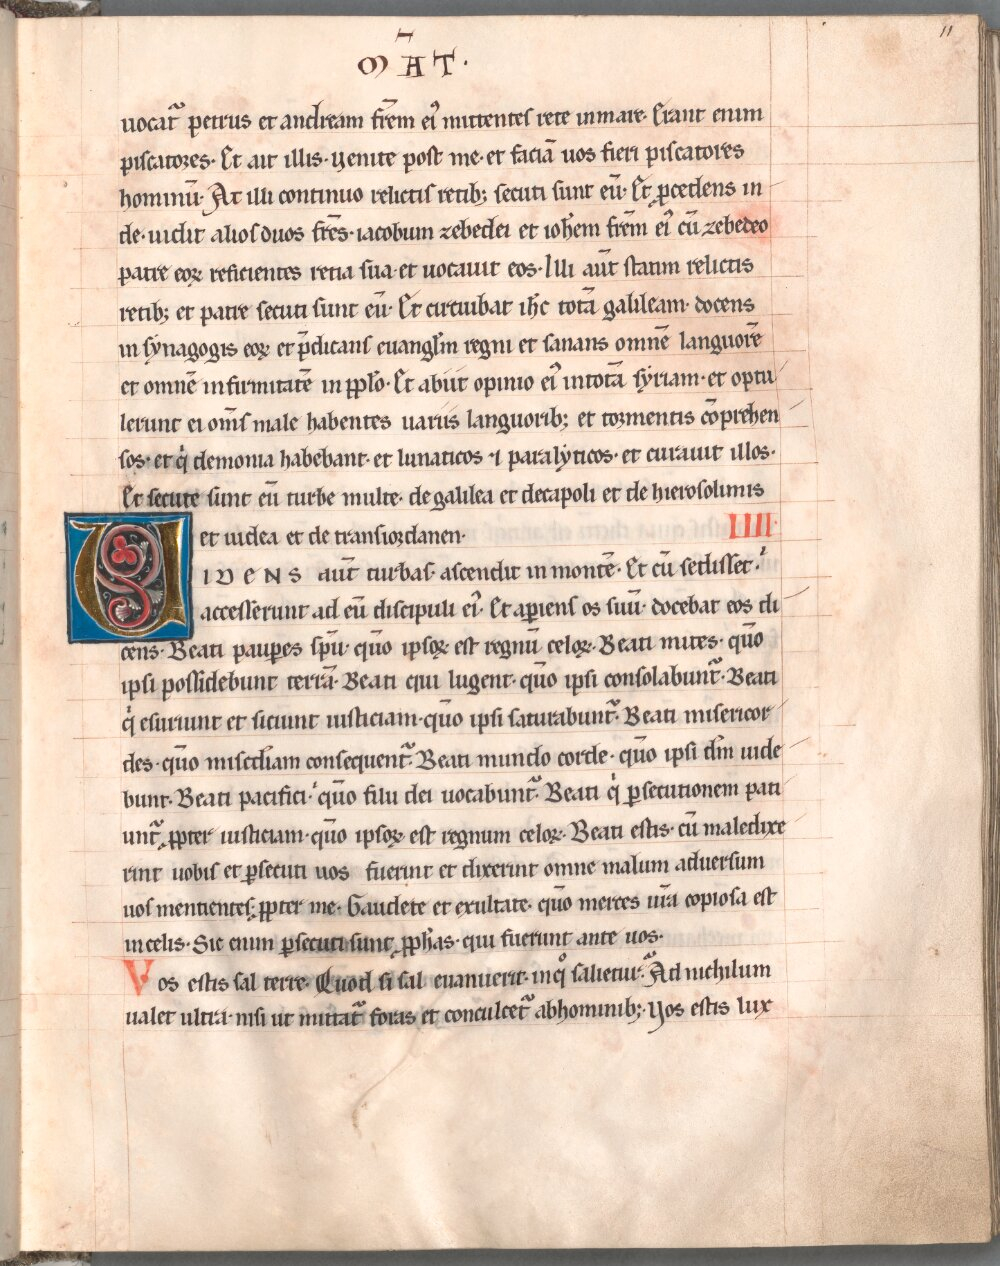 11
M̄AT·
uocat᷑ petrus et andream fr̄em ei᷒ mittentes rete inmare· Erant enim
piscatores· Et ait illis· uenite post me· et faciā uos fieri piscatores
hominū· At illi continuo relictis retib; secuti sunt eū· Et ꝓcedens in
de· uidit alios duos fr̄es· iacobum zebedei et ioh̄em fr̄em ei᷒ cū zebedeo
patre eoꝝ reficientes retia sua· et uocauit eos· Illi aūt statim relictis
retib; et patre secuti sunt eū· Et circuibat ih̄c totā galileam· docens
in synagogis eoꝝ et p̄dicans euangl̄m regni et sanans omnē languorē
et omnē infirmitatē in ppl̄o· Et abiit opinio ei᷒ intotā syriam· et optu
lerunt ei om̄s male habentes uariis languorib; et tormentis cōprehen
sos· et qͥ demonia habebant· et lunaticos ⁊ paralyticos· et curauit illos·
Et secute sunt eū turbe multe· de galilea et decapoli et de hierosolimis
et iudea et de transiordanen· IIII
UIDENS aūt turbas· ascendit in montē· Et cū sedisset·
accesserunt ad eū discipuli ei᷒· Et aꝑiens os suū· docebat eos di
cens· Beati pauꝑes sp̄u· quō ipsoꝝ est regnū celoꝝ· Beati mites· quō
ipsi possidebunt terrā· Beati qui lugent· quō ipsi consolabunt᷑· Beati
qͥ esuriunt et sitiunt iusticiam· quō ipsi saturabunt᷑· Beati misericor
des· quō misc̄diam consequent᷑· Beati mundo corde· quō ipsi dm̄ uide
bunt· Beati pacifici· quō filii dei uocabunt᷑· Beati qͥ ꝑsecutionem pati
unt᷑ ꝓpter iusticiam· quō ipsoꝝ est regnum celoꝝ· Beati estis· cū maledixe
rint uobis et ꝑsecuti uos fuerint et dixerint omne malum aduersum
uos mentientes· ꝓpter me· Gaudete et exultate· quō merces ur̄a copiosa est
incelis· Sic enim ꝑsecuti sunt ꝓph̄as· qui fuerunt ante uos·
Vos estis sal terre· Quod si sal euanuerit· inqͦ saliet᷑ur· Ad nichilum
ualet ultra· nisi ut mittat᷑ foras et conculcet᷑ abhominib;· Uos estis lux